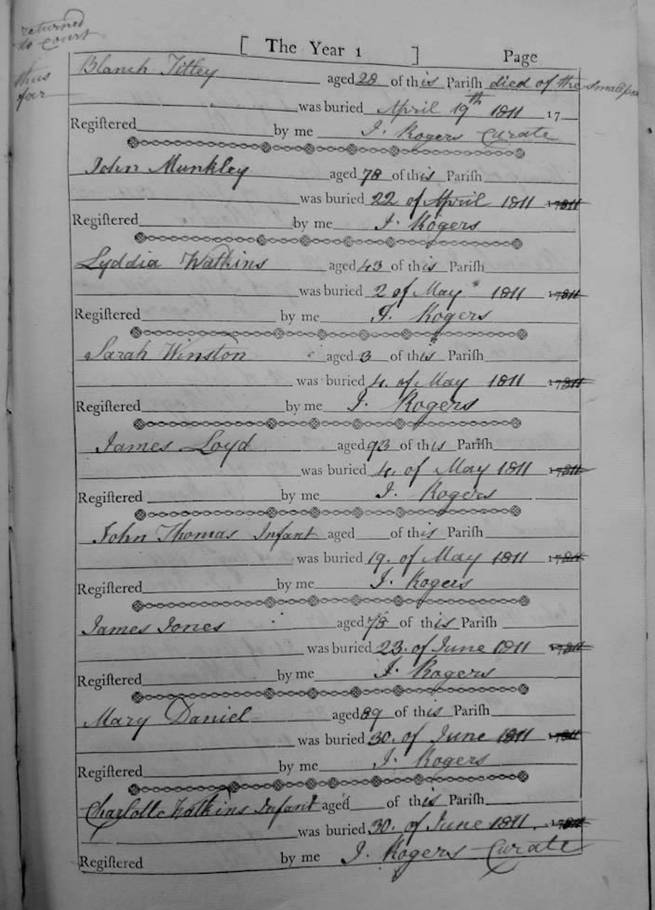 returned
to court
thus
far
[ The Year 1 ] Page
Blanch Tittey aged 28 of this Pariſh died of the smallpox
was buried April 19th 1811 17
Regiſtered by me J. Rogers Curate
John Munkley aged 78 of this Pariſh
was buried 22 of April 1811
Regiſtered by me J. Rogers
Lyddia Watkins aged 43 of this Pariſh
was buried 2 of May 1811
Regiſtered by me J. Rogers
Sarah Winston aged 3 of this Pariſh
was buried 4. of May 1811
Regiſtered by me J. Rogers
James Loyd aged 93 of this Pariſh
was buried 4. of May 1811
Regiſtered by me J. Rogers
John Thomas Infant aged of this Pariſh
was buried 19. of May 1811
Regiſtered by me J. Rogers
James Jones aged 78 of this Pariſh
was buried 23. of June 1811
Regiſtered by me J. Rogers
Mary Daniel aged 89 of this Pariſh
was buried 30. of June 1811
Regiſtered by me J. Rogers
Charlotte Watkins Infant aged of this Pariſh
was buried 30. of June 1811.
Regiſtered by me J. Rogers Curate